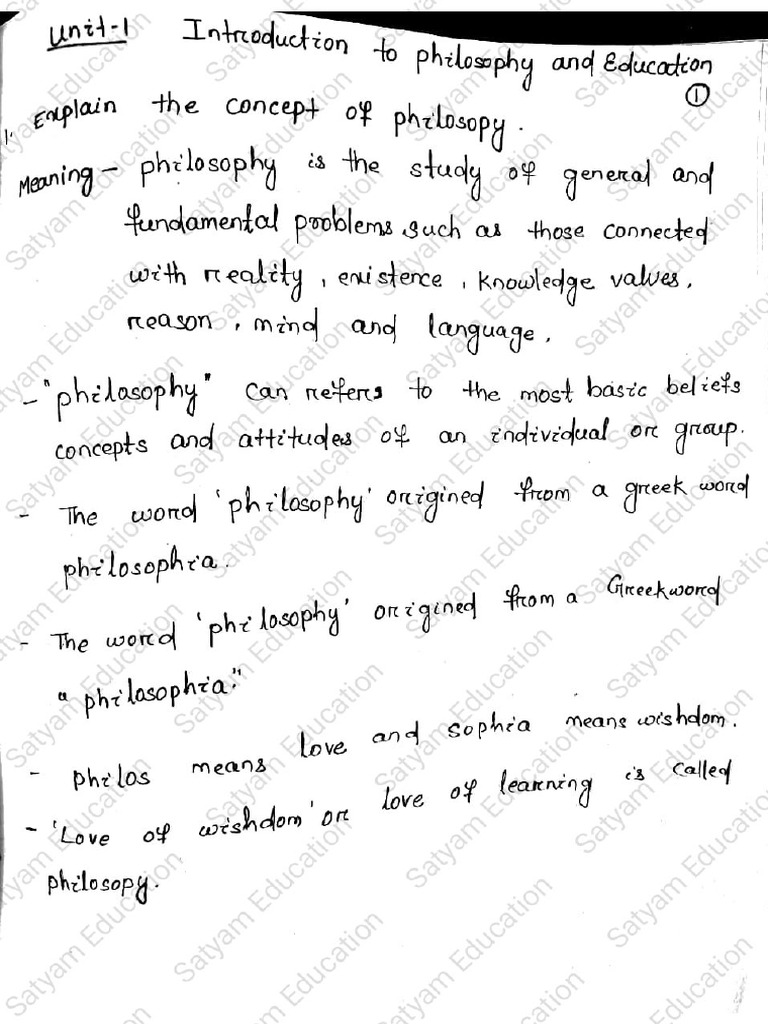 Unit-1 Introduction to philosophy and Education
①
1. Explain the concept of philosopy.
Meaning - philosophy is the study of general and
fundamental problems, such as those connected
with reality, existence, knowledge values,
reason, mind and language.
- "philosophy" can refers to the most basic beliefs
concepts and attitudes of an individual or group.
- The word 'philosophy' origined from a greek word
philosophia.
- The word 'philosophy' origined from a Greekword
"philosophia."
- philos means love and sophia means wishdom.
- 'Love of wishdom' or love of learning is called
philosopy.
Satyam Education